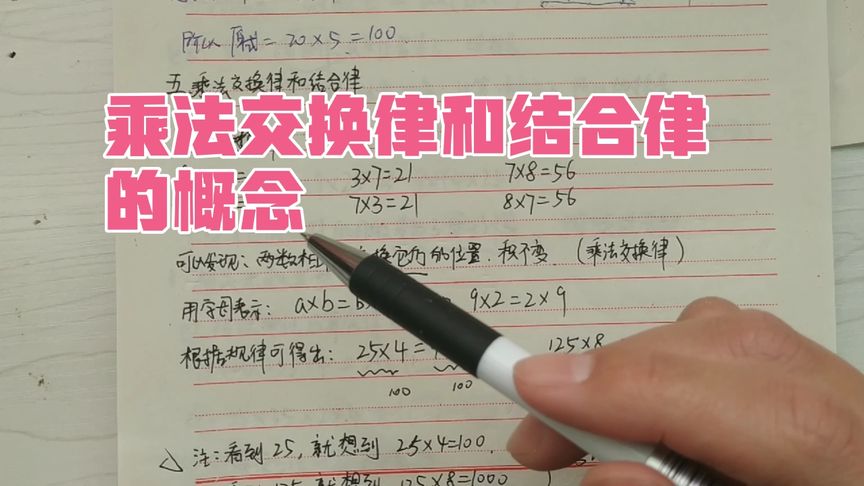 所以原式=20×5=100
五 乘法交换律和结合律
乘法交换律和结合律
的概念
3×7=21 7×8=56
7×3=21 8×7=56
可以发现: 两数相 换它们的位置 积不变 (乘法交换律)
用字母表示: a×b=b 9×2=2×9
根据规律可得出: 25×4= 125×8
100 100
注:看到25,就想到 25×4=100,
125 就想到 125×8=1000